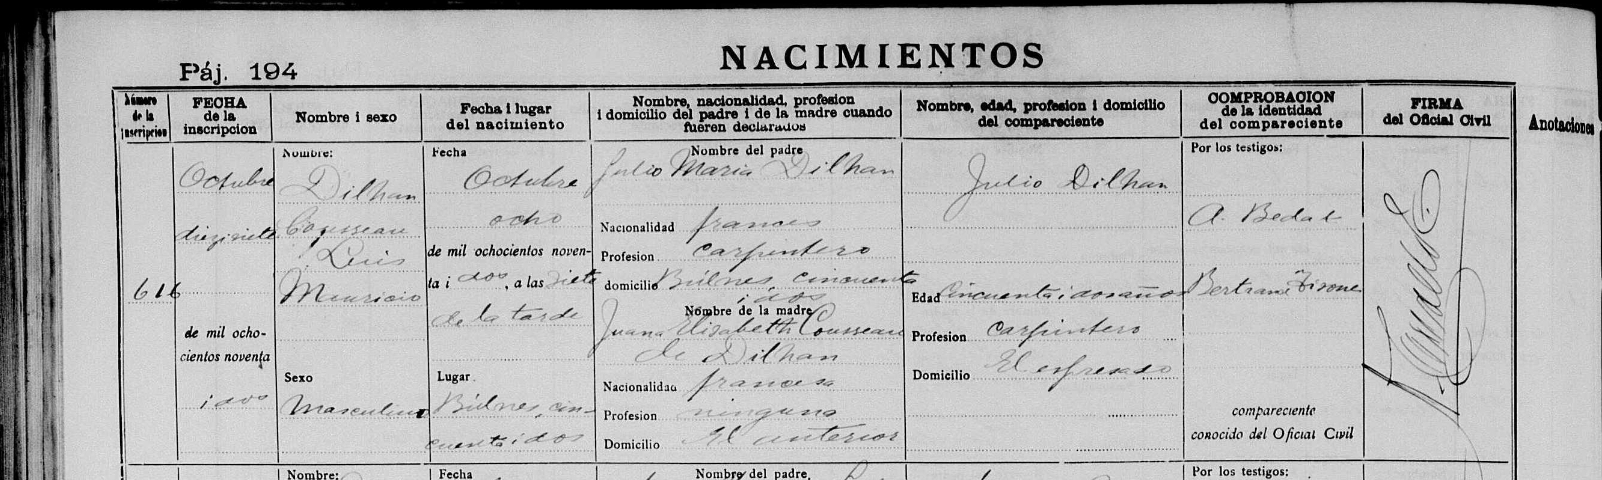 NACIMIENTOS
Páj. 194
Número
de la
inscripcion
FECHA
de la
inscripcion
Nombre i sexo
Fecha i lugar
del nacimiento
Nombre, nacionalidad, profesion
i domicilio del padre i de la madre cuando
fueren declarados
Nombre, edad, profesion i domicilio
del compareciente
COMPROBACION
de la identidad
del compareciente
FIRMA
del Oficial Civil
Anotaciones
616
Octubre
diezisiete
de mil ocho-
cientos noventa
i dos
Nombre:
Dilhan
Cousseau
Luis
Mauricio
Sexo
Masculino
Fecha
Octubre
ocho
de mil ochocientos noven-
ta i dos, a las siete
de la tarde
Lugar
Búlnes, cin-
cuenta i dos
Nombre del padre
Julio Maria Dilhan
Nacionalidad frances
Profesion carpintero
domicilio Búlnes, cincuenta
i dos
Nombre de la madre
Juana Elisabeth Cousseau
de Dilhan
Nacionalidad francesa
Profesion ninguna
Domicilio El anterior
Julio Dilhan
Edad Cincuenta i dos años
Profesion carpintero
Domicilio El espresado
Por los testigos:
A. Bedat
Bertrand
compareciente
conocido del Oficial Civil
Nombre:
Fecha
Nombre del padre
Por los testigos: